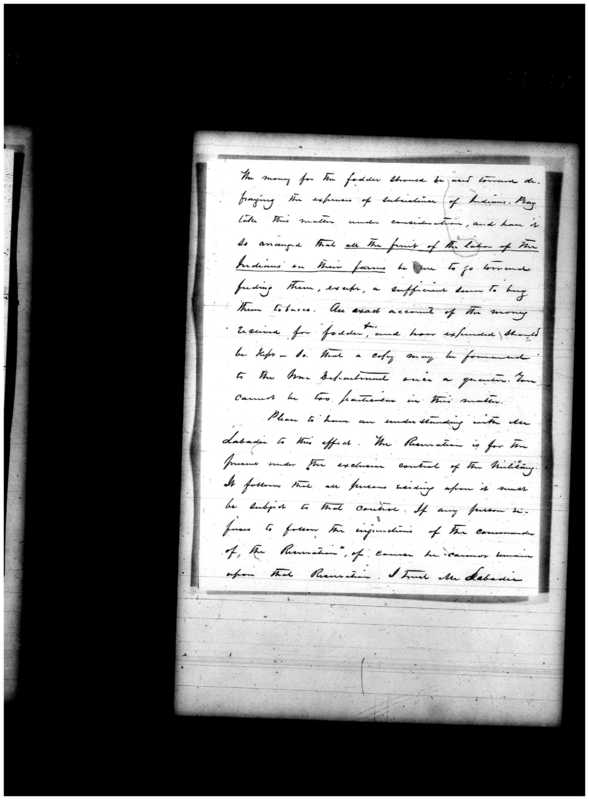 The money for the fodder should be used toward de-
fraying the expenses of subsistence of Indians. Pray
take this matter under consideration, and have it
so arranged that all the fruit of the labor of the
Indians on their farms be made to go toward
feeding them, except, a sufficient sum to buy
them tobacco. An exact account of the money
received for fodder &c, and how expended should
be kept - So that a copy may be forwarded
to the War Department once a quarter. You
cannot be too particular in this matter.
Please to have an understanding with Mr
Labadie to this effect. The Reservation is for the
present under the exclusive control of the Military.
It follows that all persons residing upon it must
be subject to that control. If any person re-
fuses to follow the injunctions of the commander
of, the Reservation, of course he cannot remain
upon that Reservation. I trust Mr Labadie